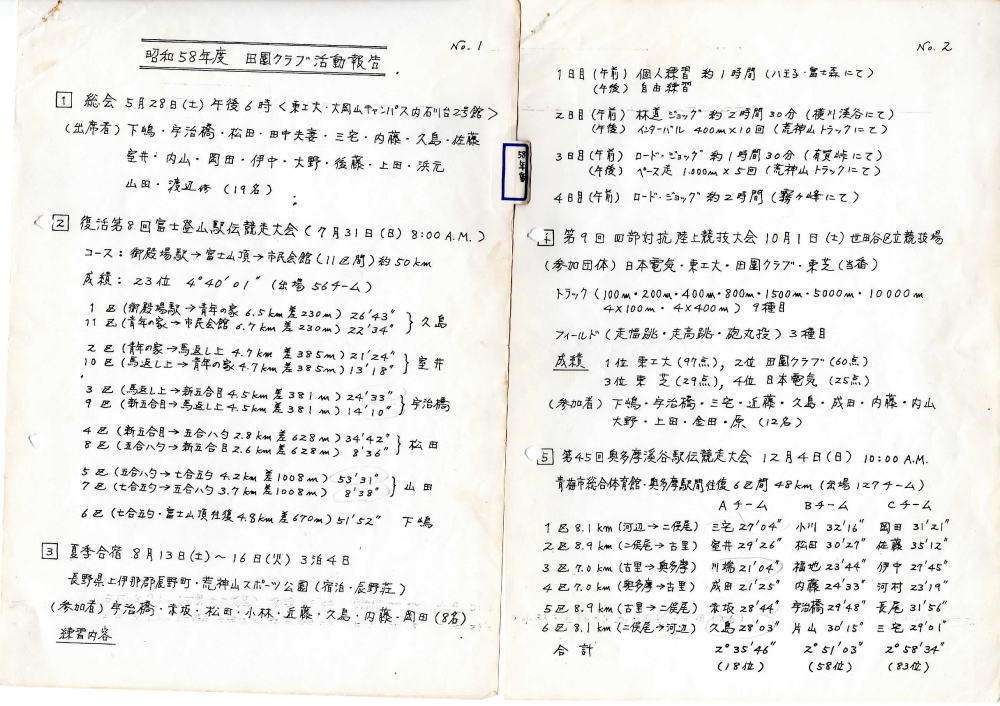 No. 1
昭和58年度 田園クラブ活動報告.
1 総会 5月28日(土)午後6時<東工大・大岡山キャンパス内石川台2号館>
(出席者)下嶋・宇治橋・松田・田中夫妻・三宅・内藤・久島・佐藤
室井・内山・岡田・伊中・大野・後藤・上田・浜元
山田・渡辺修(19名)
2 復活第8回富士登山駅伝競走大会(7月31日(日) 8:00 A.M.)
コース:御殿場駅→富士山頂→市民会館(11区間)約50km
成績:23位 4°40′01″(出場56チーム)
1区(御殿場駅→青年の家 6.5km 差230m)26′43″
11区(青年の家→市民会館 6.7km 差230m)22′34″ } 久島
2区(青年の家→馬返し上 4.7km 差385m)21′24″
10区(馬返し上→青年の家 4.7km 差385m)13′18″ } 室井
3区(馬返し上→新五合目 4.5km 差381m)24′33″
9区(新五合目→馬返し上 4.5km 差381m)14′10″ } 宇治橋
4区(新五合目→五合八勺 2.8km 差628m)34′42″
8区(五合八勺→新五合目 2.6km 差628m)8′36″ } 松田
5区(五合八勺→七合五勺 4.2km 差1008m)53′31″
7区(七合五勺→五合八勺 3.7km 差1008m)8′38″ } 山田
6区(七合五勺・富士山頂往復 4.8km 差670m)51′52″ 下嶋
3 夏季合宿 8月13日(土)〜16日(火)3泊4日
長野県上伊那郡辰野町・荒神山スポーツ公園(宿泊・辰野荘)
(参加者)宇治橋・赤坂・松町・小林・近藤・久島・内藤・岡田(8名)
練習内容
58年度
No. 2
1日目(午前) 個人練習 約1時間(八王子・富士森にて)
(午後) 自由練習
2日目(午前) 林道ジョッグ 約2時間30分(横川渓谷にて)
(午後) インターバル 400m×10回(荒神山トラックにて)
3日目(午前) ロード・ジョッグ 約1時間30分(有賀峠にて)
(午後) ペース走 1.000m×5回(荒神山トラックにて)
4日目(午前) ロード・ジョッグ 約2時間(霧ヶ峰にて)
4 第9回 四部対抗陸上競技大会 10月1日(土)世田谷区立競技場
(参加団体)日本電気・東工大・田園クラブ・東芝(当番)
トラック(100m・200m・400m・800m・1500m・5000m・10000m
4×100m・4×400m) 9種目
フィールド(走幅跳・走高跳・砲丸投)3種目
成績 1位 東工大(97点), 2位 田園クラブ(60点)
3位 東芝(29点), 4位 日本電気(25点)
(参加者)下嶋・宇治橋・三宅・近藤・久島・成田・内藤・内山
大野・上田・金田・原(12名)
5 第45回奥多摩渓谷駅伝競走大会 12月4日(日) 10:00 A.M.
青梅市総合体育館・奥多摩駅間往復6区間 48km(出場127チーム)
Aチーム Bチーム Cチーム
1区 8.1km(河辺→二俣尾) 三宅 27′04″ 小川 32′16″ 岡田 31′21″
2区 8.9km(二俣尾→古里) 室井 29′26″ 松田 30′27″ 佐藤 35′12″
3区 7.0km(古里→奥多摩) 川端 21′04″ 福地 23′44″ 伊中 27′45″
4区 7.0km(奥多摩→古里) 成田 21′25″ 内藤 24′33″ 河村 23′19″
5区 8.9km(古里→二俣尾) 赤坂 28′44″ 宇治橋 29′48″ 長尾 31′56″
6区 8.1km(二俣尾→河辺) 久島 28′03″ 片山 30′15″ 三宅 29′01″
合計 2°35′46″ 2°51′03″ 2°58′34″
(18位) (58位) (83位)